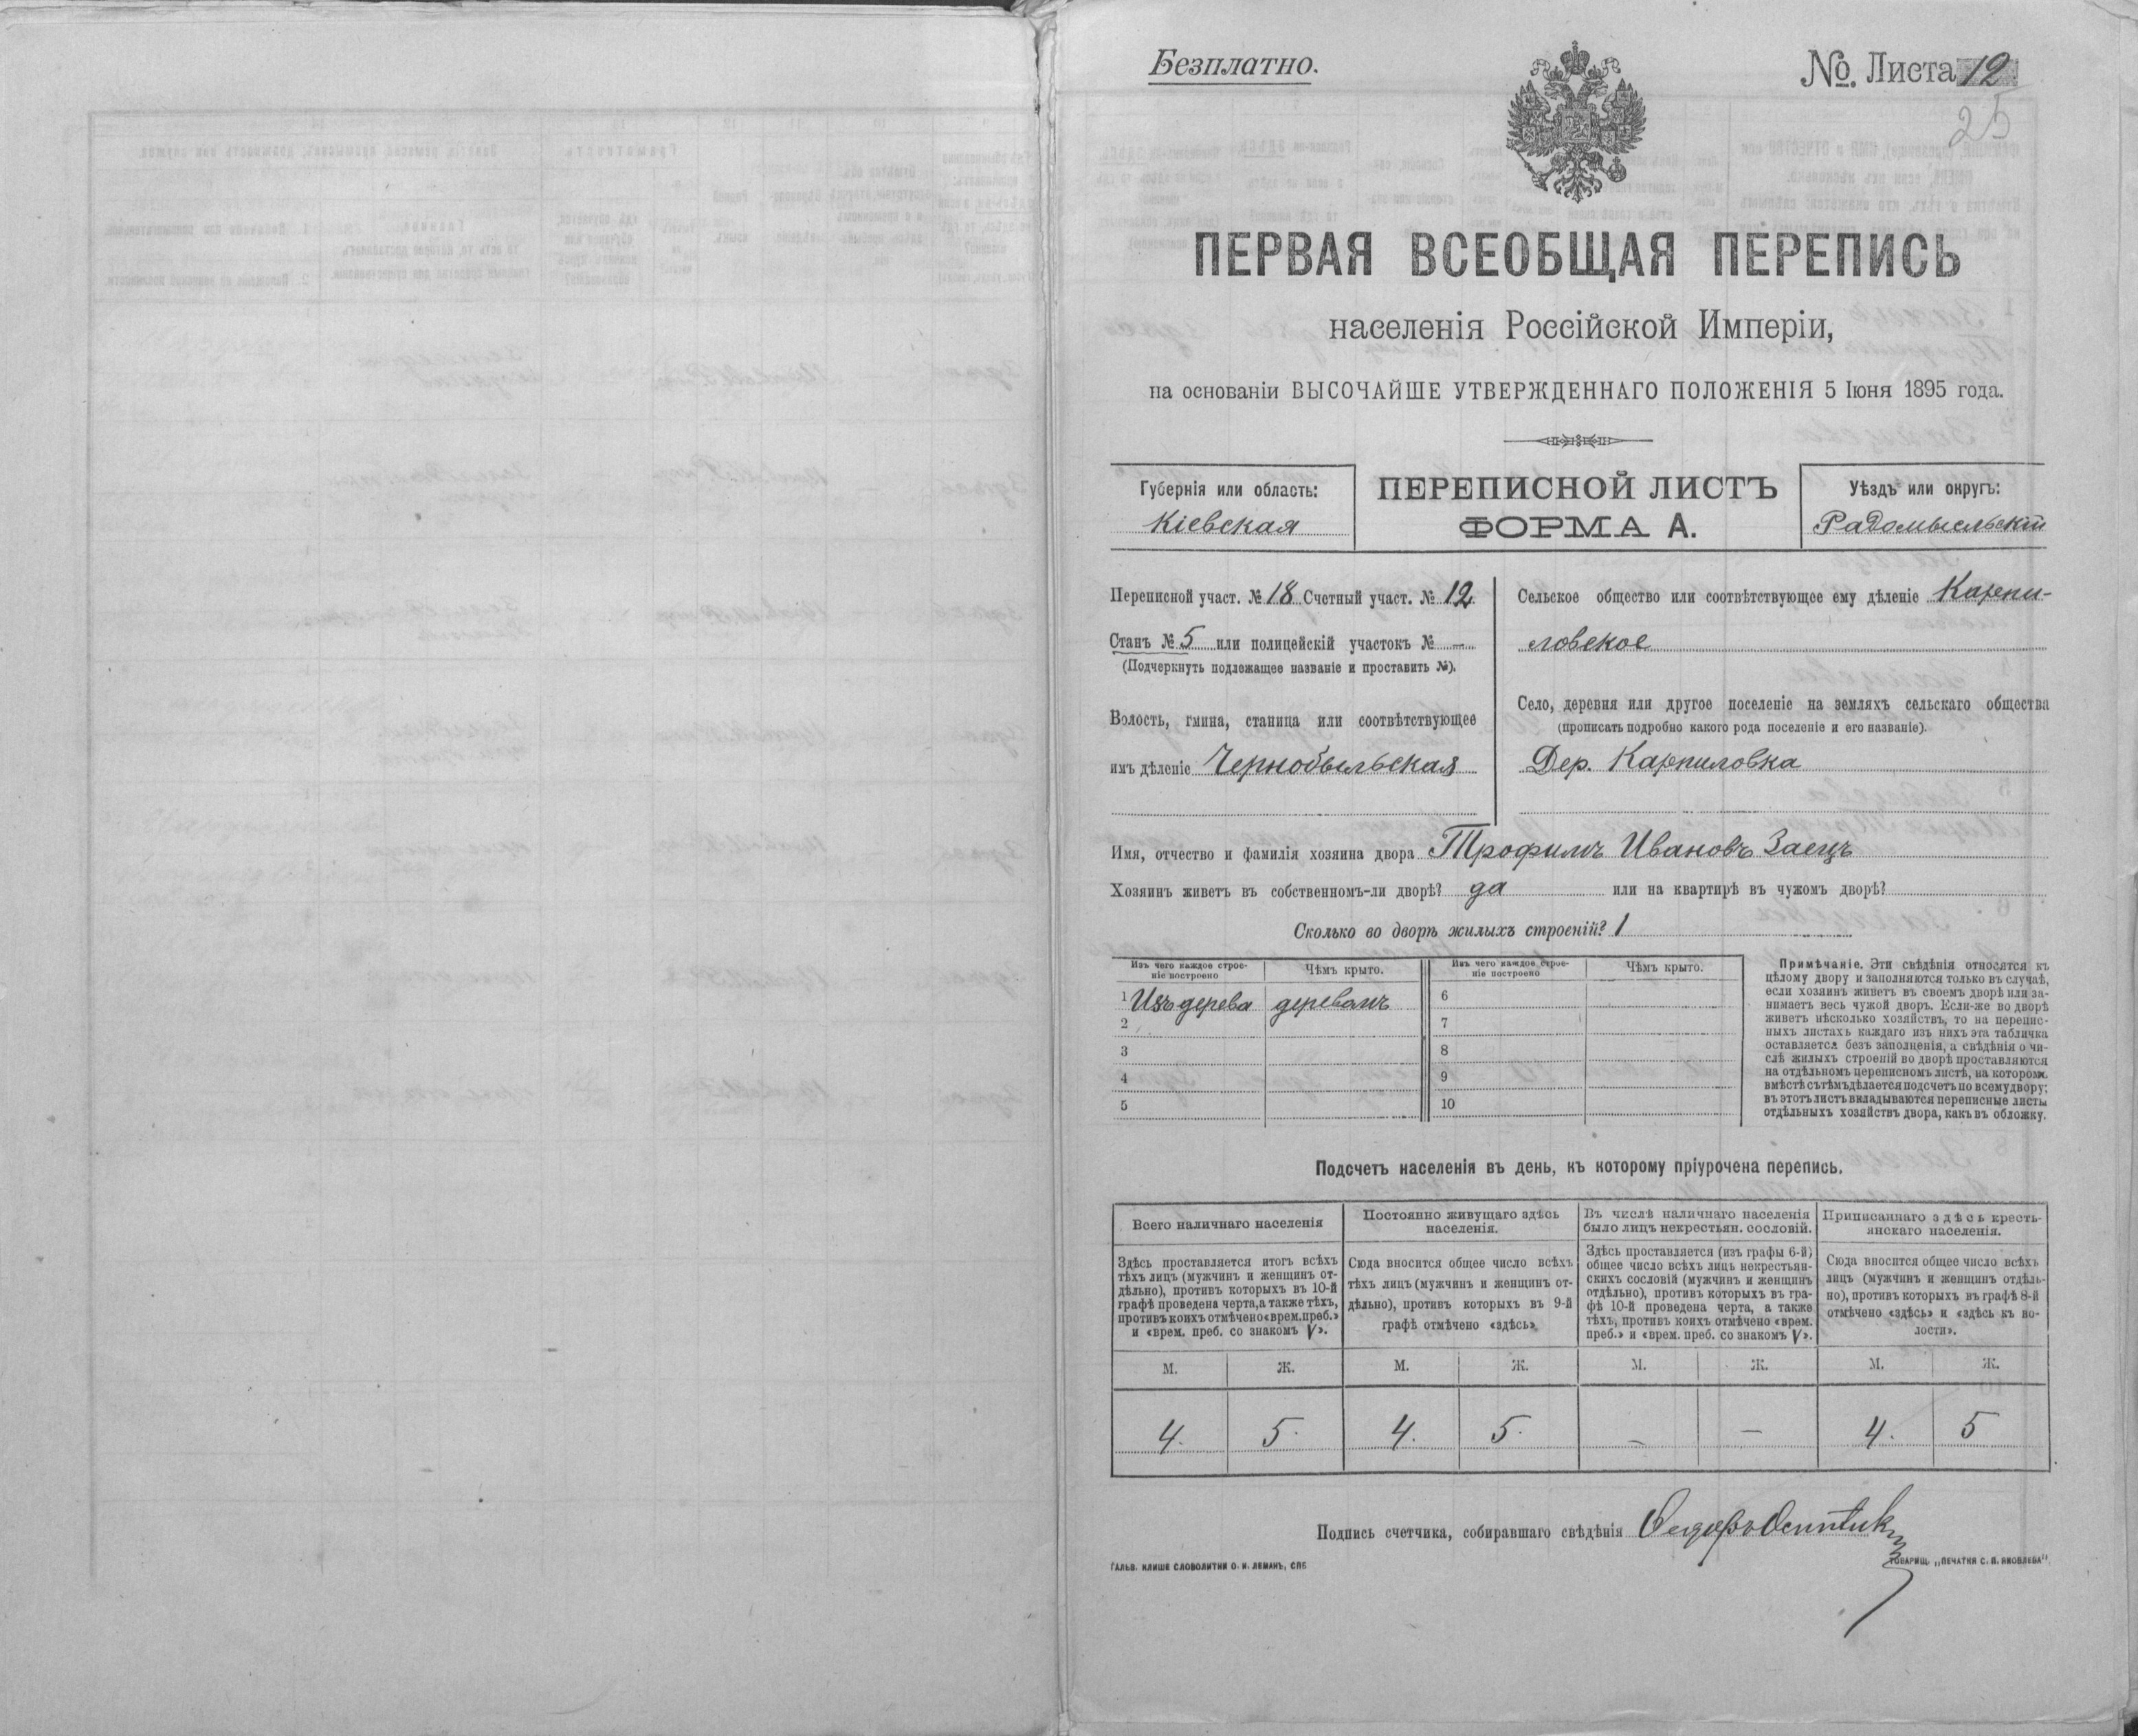 Безплатно.
№. Листа 12
25
ПЕРВАЯ ВСЕОБЩАЯ ПЕРЕПИСЬ
населенія Россійской Имперіи,
на основаніи ВЫСОЧАЙШЕ УТВЕРЖДЕННАГО ПОЛОЖЕНІЯ 5 Іюня 1895 года.
Губернія или область:
Кіевская
ПЕРЕПИСНОЙ ЛИСТЪ
ФОРМА А.
Уѣздъ или округъ:
Радомысльскій
Переписной участ. № 18 Счетный участ. № 12.
Станъ № 5 или полицейскій участокъ № —
(Подчеркнуть подлежащее названіе и проставить №).
Волость, гмина, станица или соотвѣтствующее
имъ дѣленіе Чернобыльская
Сельское общество или соотвѣтствующее ему дѣленіе Карпи-
ловское
Село, деревня или другое поселеніе на земляхъ сельскаго общества
(прописать подробно какого рода поселеніе и его названіе).
Дер. Карпиловка
Имя, отчество и фамилія хозяина двора Трофимъ Ивановъ Заецъ
Хозяинъ живетъ въ собственномъ-ли дворѣ? да или на квартирѣ въ чужомъ дворѣ?
Сколько во дворѣ жилыхъ строеній? 1
Изъ чего каждое строе-
ніе построено
Чѣмъ крыто.
Изъ чего каждое строе-
ніе построено
Чѣмъ крыто.
1 Изъ дерева деревомъ
2
3
4
5
6
7
8
9
10
Примѣчаніе. Эти свѣдѣнія относятся къ
цѣлому двору и заполняются только въ случаѣ,
если хозяинъ живетъ въ своемъ дворѣ или за-
нимаетъ весь чужой дворъ. Если-же во дворѣ
живетъ нѣсколько хозяйствъ, то на перепис-
ныхъ листахъ каждаго изъ нихъ эта табличка
оставляется безъ заполненія, а свѣдѣнія о чи-
слѣ жилыхъ строеній во дворѣ проставляются
на отдѣльномъ переписномъ листѣ, на которомъ
вмѣстѣ съ тѣмъ дѣлается подсчетъ по всему двору;
въ этотъ листъ вкладываются переписные листы
отдѣльныхъ хозяйствъ двора, какъ въ обложку.
Подсчетъ населенія въ день, къ которому пріурочена перепись.
Всего наличнаго населенія
Здѣсь проставляется итогъ всѣхъ
тѣхъ лицъ (мужчинъ и женщинъ от-
дѣльно), противъ которыхъ въ 10-й
графѣ проведена черта, а также тѣхъ,
противъ коихъ отмѣчено «врем. преб.»
и «врем. преб. со знакомъ V».
Постоянно живущаго здѣсь
населенія.
Сюда вносится общее число всѣхъ
тѣхъ лицъ (мужчинъ и женщинъ от-
дѣльно), противъ которыхъ въ 9-й
графѣ отмѣчено «здѣсь»
Въ числѣ наличнаго населенія
было лицъ некрестьян. сословій.
Здѣсь проставляется (изъ графы 6-й)
общее число всѣхъ лицъ некрестьян-
скихъ сословій (мужчинъ и женщинъ
отдѣльно), противъ которыхъ въ гра-
фѣ 10-й проведена черта, а также
тѣхъ, противъ коихъ отмѣчено «врем.
преб.» и «врем. преб. со знакомъ V».
Приписаннаго здѣсь кресть-
янскаго населенія.
Сюда вносится общее число всѣхъ
лицъ (мужчинъ и женщинъ отдѣль-
но), противъ которыхъ въ графѣ 8-й
отмѣчено «здѣсь» и «здѣсь къ во-
лости».
М. Ж. М. Ж. М. Ж. М. Ж.
4. 5. 4. 5. — — 4. 5
Подпись счетчика, собиравшаго свѣдѣнія
ГАЛЬВ. КЛИШЕ СЛОВОЛИТНИ О. И. ЛЕМАНЪ, СПБ
ТОВАРИЩ. „ПЕЧАТНЯ С. П. ЯКОВЛЕВА"